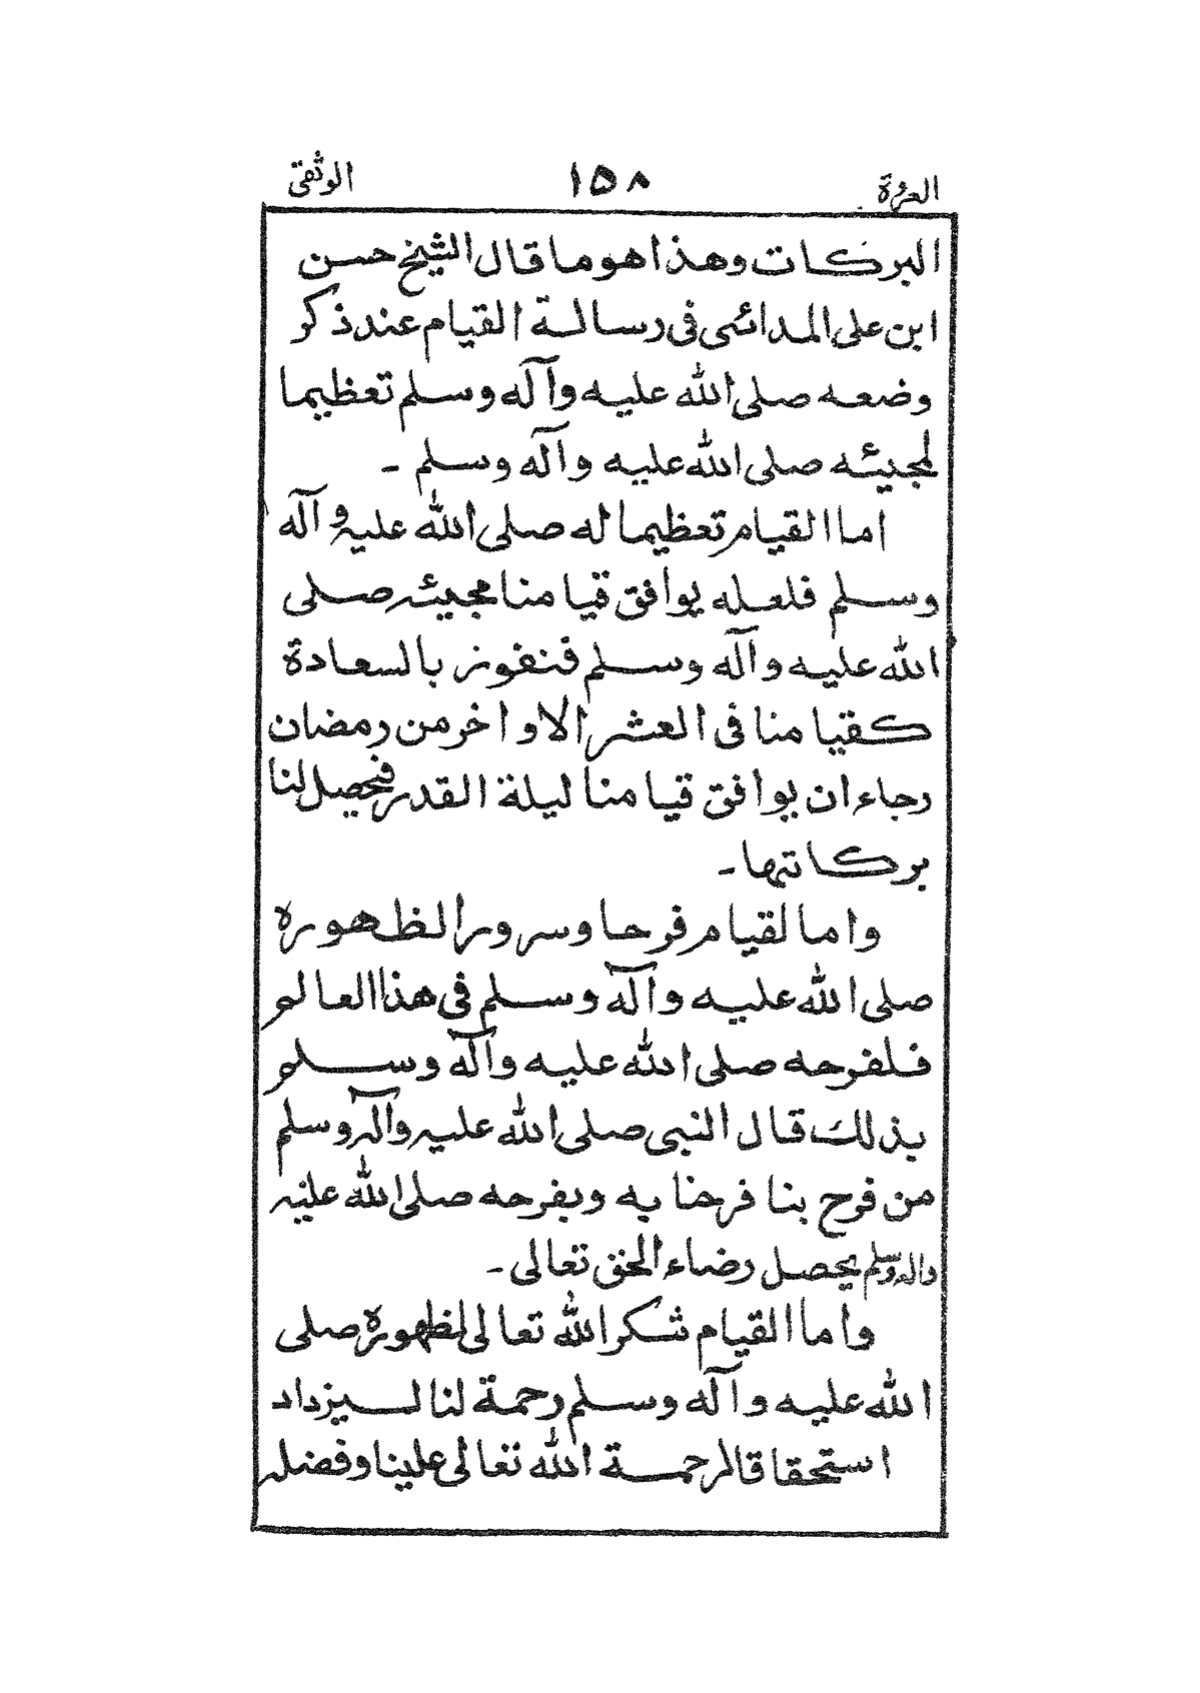 العروة ١٥٨ الوثقى
البركات وهذا هو ما قال الشيخ حسن
ابن على المدائى فى رسالة القيام عند ذكر
وضعه صلى الله عليه وآله وسلم تعظيما
لمجيئه صلى الله عليه وآله وسلم ۔
اما القيام تعظيما له صلى الله عليه وآله
وسلم فلعله يوافق قيامنا مجيئه صلى
الله عليه وآله وسلم فنفوز بالسعادة
كقيامنا فى العشر الاواخر من رمضان
رجاء ان يوافق قيامنا ليلة القدر فيحصل لنا
بركاتها ۔
واما لقيام فرحا وسرورا لظهوره
صلى الله عليه وآله وسلم فى هذا العالم
فلفرحه صلى الله عليه وآله وسلم
بذلك قال النبى صلى الله عليه وآله وسلم
من فرح بنا فرحنا به وبفرحه صلى الله عليه
واله وسلم يحصل رضاء الحق تعالى ۔
واما القيام شكرا لله تعالى لظهوره صلى
الله عليه وآله وسلم رحمة لنا ليزداد
استحقاقا لرحمة الله تعالى علينا وفضله